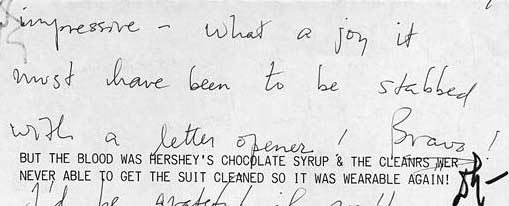 impressive – what a joy it
must have been to be stabbed
with a letter opener! Bravo!
BUT THE BLOOD WAS HERSHEY'S CHOCOLATE SYRUP & THE CLEANRS WER
NEVER ABLE TO GET THE SUIT CLEANED SO IT WAS WEARABLE AGAIN!
I'd be grateful if